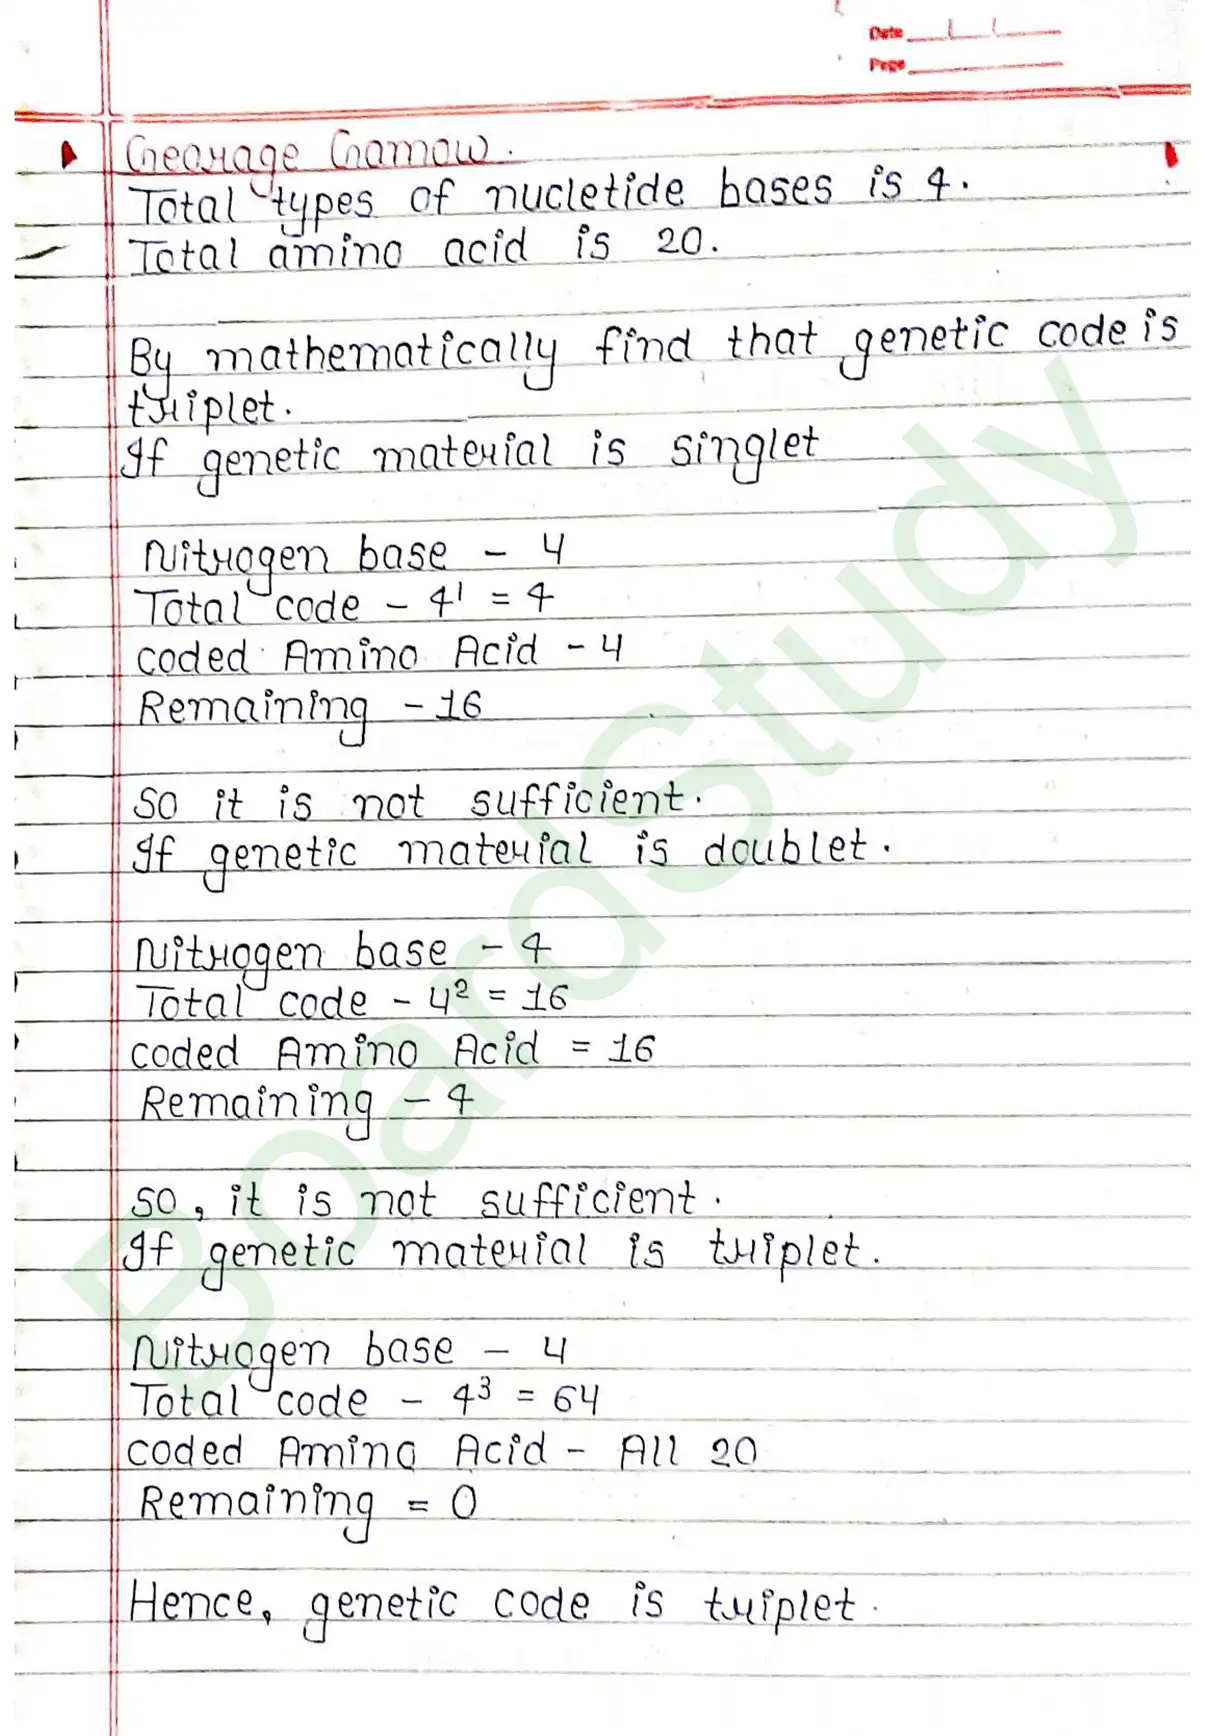 Date
Page
Gearage Gamow.
Total types of nucletide bases is 4.
Total amino acid is 20.
By mathematically find that genetic code is
triplet.
If genetic material is singlet
Nitrogen base - 4
Total code - 4¹ = 4
coded Amino Acid - 4
Remaining - 16
So it is not sufficient.
If genetic material is doublet.
Nitrogen base - 4
Total code - 4² = 16
coded Amino Acid = 16
Remaining - 4
so, it is not sufficient.
If genetic material is triplet.
Nitrogen base - 4
Total code - 4³ = 64
coded Amino Acid - All 20
Remaining = 0
Hence, genetic code is triplet.
BoardStudy